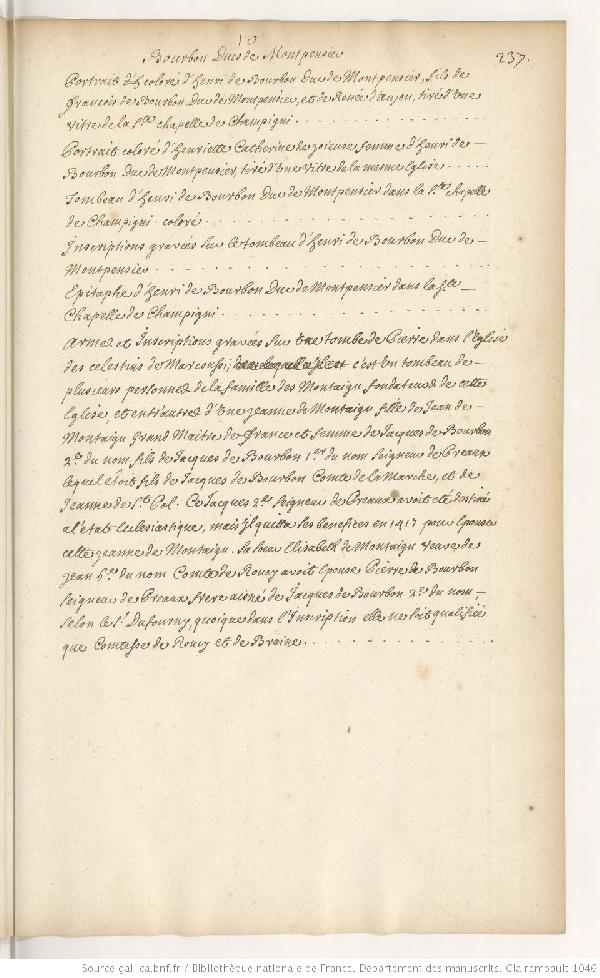 10
Bourbon Ducs de Montpensier
237.
Portrait d'h coloré d'henri de Bourbon Duc de Montpensier, fils de
françois de Bourbon Duc de Montpensier, et de Renée d'anjou, tiré d'Une
vitre de la Ste chapelle de Champigni . . . . . . . . . .
Portrait coloré d'henriette Catherine de joieuse femme d'henri de -
Bourbon Duc de Montpensier, tiré d'Une Vitre de la mesme Eglise . . . . .
Tombeau d'henri de Bourbon Duc de Montpensier dans la Ste chapelle
de Champigni coloré . . . . . . . . . .
Inscriptions gravées sur le tombeau d'henri de Bourbon Duc de -
Montpensier . . . . . . . . . .
Epitaphe d'henri de Bourbon Duc de Montpensier dans la Ste -
Chapelle de Champigni . . . . . . . . . .
Armes et Inscriptions gravées sur Une tombe de Pierre dans l'Eglise
des celestins de Marcoussi; c'est Un tombeau de -
plusieurs personnes de la famille des Montaigu fondateurs de cette
Eglise, et entr'autres d'Une jeanne de Montaigu fille de Jean de -
Montaigu Grand Maitre de france et femme de Jacques de Bourbon
2e du nom fils de Jacques de Bourbon 1er du nom seigneur de Preaux
lequel étoit fils de Jacques de Bourbon Comte de la Marche, et de
Jeanne de St Pol. Ce Jacques 2e seigneur de Preaux avoit eté destiné
a l'etat Ecclesiastique, mais Il quitta les benefices en 1417 pour Epouser
cette jeanne de Montaigu. sa soeur Elisabeth de Montaigu veuve de
Jean 6e du nom Comte de Roucy avoit Epousé Pierre de Bourbon
seigneur de Preaux frere ainé de Jacques de Bourbon 2e du nom -
selon le Sr Dufourny, quoique dans l'Inscription elle ne soit qualifiée
que Comtesse de Roucy et de Braine . . . . . . . . . .
Source gallica.bnf.fr / Bibliothèque nationale de France. Département des manuscrits. Clairambault 1046